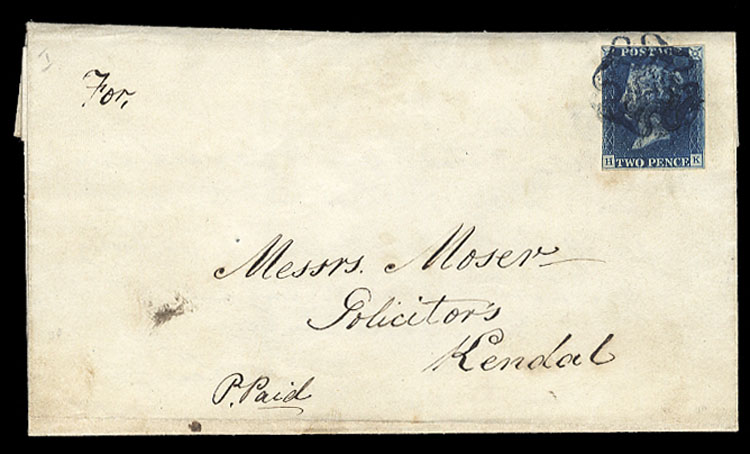 For,
POSTAGE
H TWO PENCE K
Messrs. Moser
Solicitors
Kendal
P. Paid